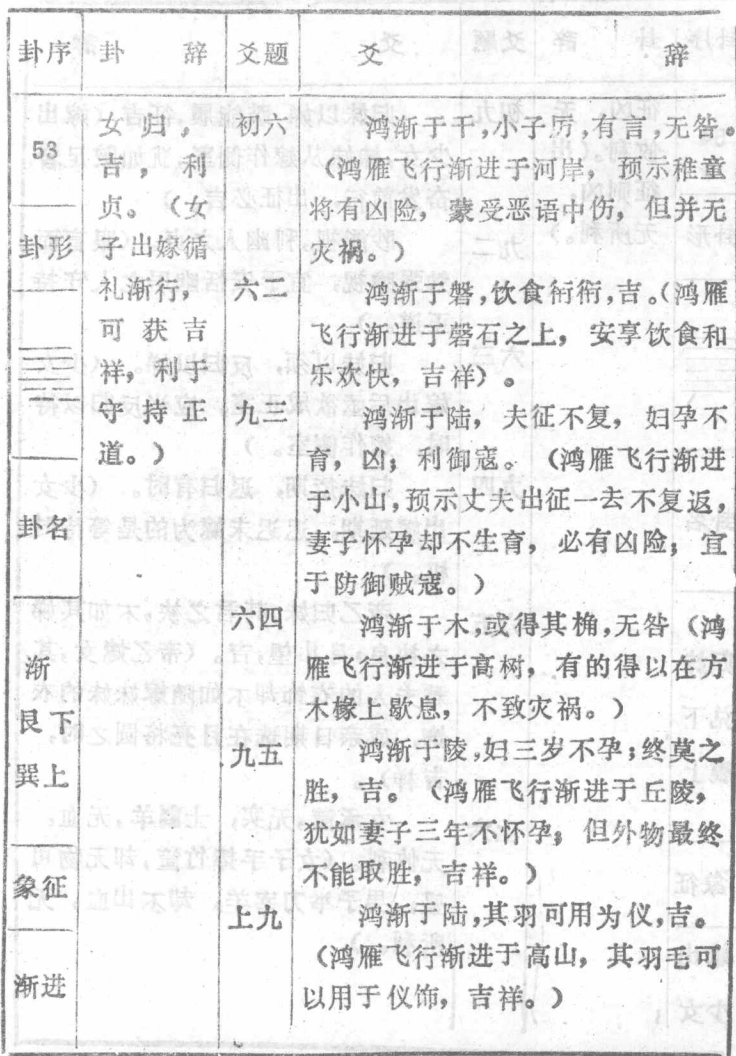 卦序 卦 辞 爻题 爻 辞
53
卦形
卦名
渐
艮下
巽上
象征
渐进
女归，
吉，利
贞。（女
子出嫁循
礼渐行，
可获吉
祥，利于
守持正
道。）
初六
鸿渐于干，小子厉，有言，无咎。
（鸿雁飞行渐进于河岸，预示稚童
将有凶险，蒙受恶语中伤，但并无
灾祸。）
六二
鸿渐于磐，饮食衎衎，吉。（鸿雁
飞行渐进于磬石之上，安享饮食和
乐欢快，吉祥）。
九三
鸿渐于陆，夫征不复，妇孕不
育，凶；利御寇。（鸿雁飞行渐进
于小山，预示丈夫出征一去不复返，
妻子怀孕却不生育，必有凶险；宜
于防御贼寇。）
六四
鸿渐于木，或得其桷，无咎（鸿
雁飞行渐进于高树，有的得以在方
木椽上歇息，不致灾祸。）
九五
鸿渐于陵，妇三岁不孕；终莫之
胜，吉。（鸿雁飞行渐进于丘陵，
犹如妻子三年不怀孕；但外物最终
不能取胜，吉祥。）
上九
鸿渐于陆，其羽可用为仪，吉。
（鸿雁飞行渐进于高山，其羽毛可
以用于仪饰，吉祥。）